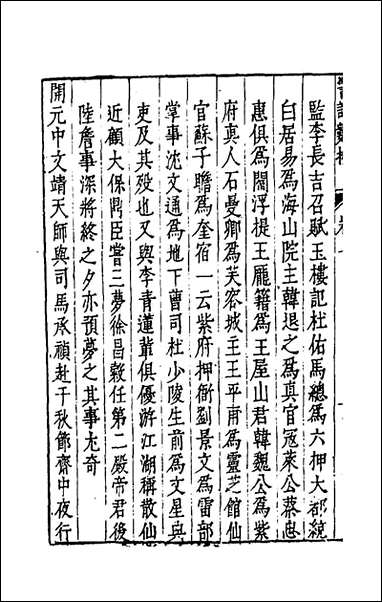 監李長吉召賦玉樓記杜佑馬總為六押大都統
白居易為海山院主韓退之為真官寇萊公蔡忠
惠俱為閻浮提王龐籍為王屋山君韓魏公為紫
府真人石曼卿為芙蓉城主王平甫為靈芝館仙
官蘇子瞻為奎宿一云紫府押衙劉景文為雷部
掌事沈文通為地下曹司杜少陵生前為文星典
吏及其殁也又與李青蓮輩俱優游江湖稱散仙
近顧大保鼎臣嘗三夢徐昌榖任第二殿帝君後
陸詹事深將終之夕亦預夢之其事尤奇
開元中文靖天師與司馬承禎赴千秋節齋中夜行